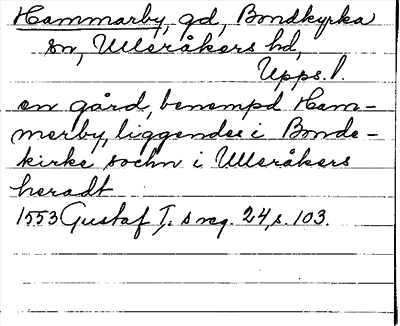 Hammarby, gd, Bondkyrka
sn, Ulleråkers hd,
Upps. l.
en gård, benempd Ham-
merby, liggendes i Bonde-
kirke sochn i Ulleråkers
heradt
1553 Gustaf I:s reg. 24, s. 103.